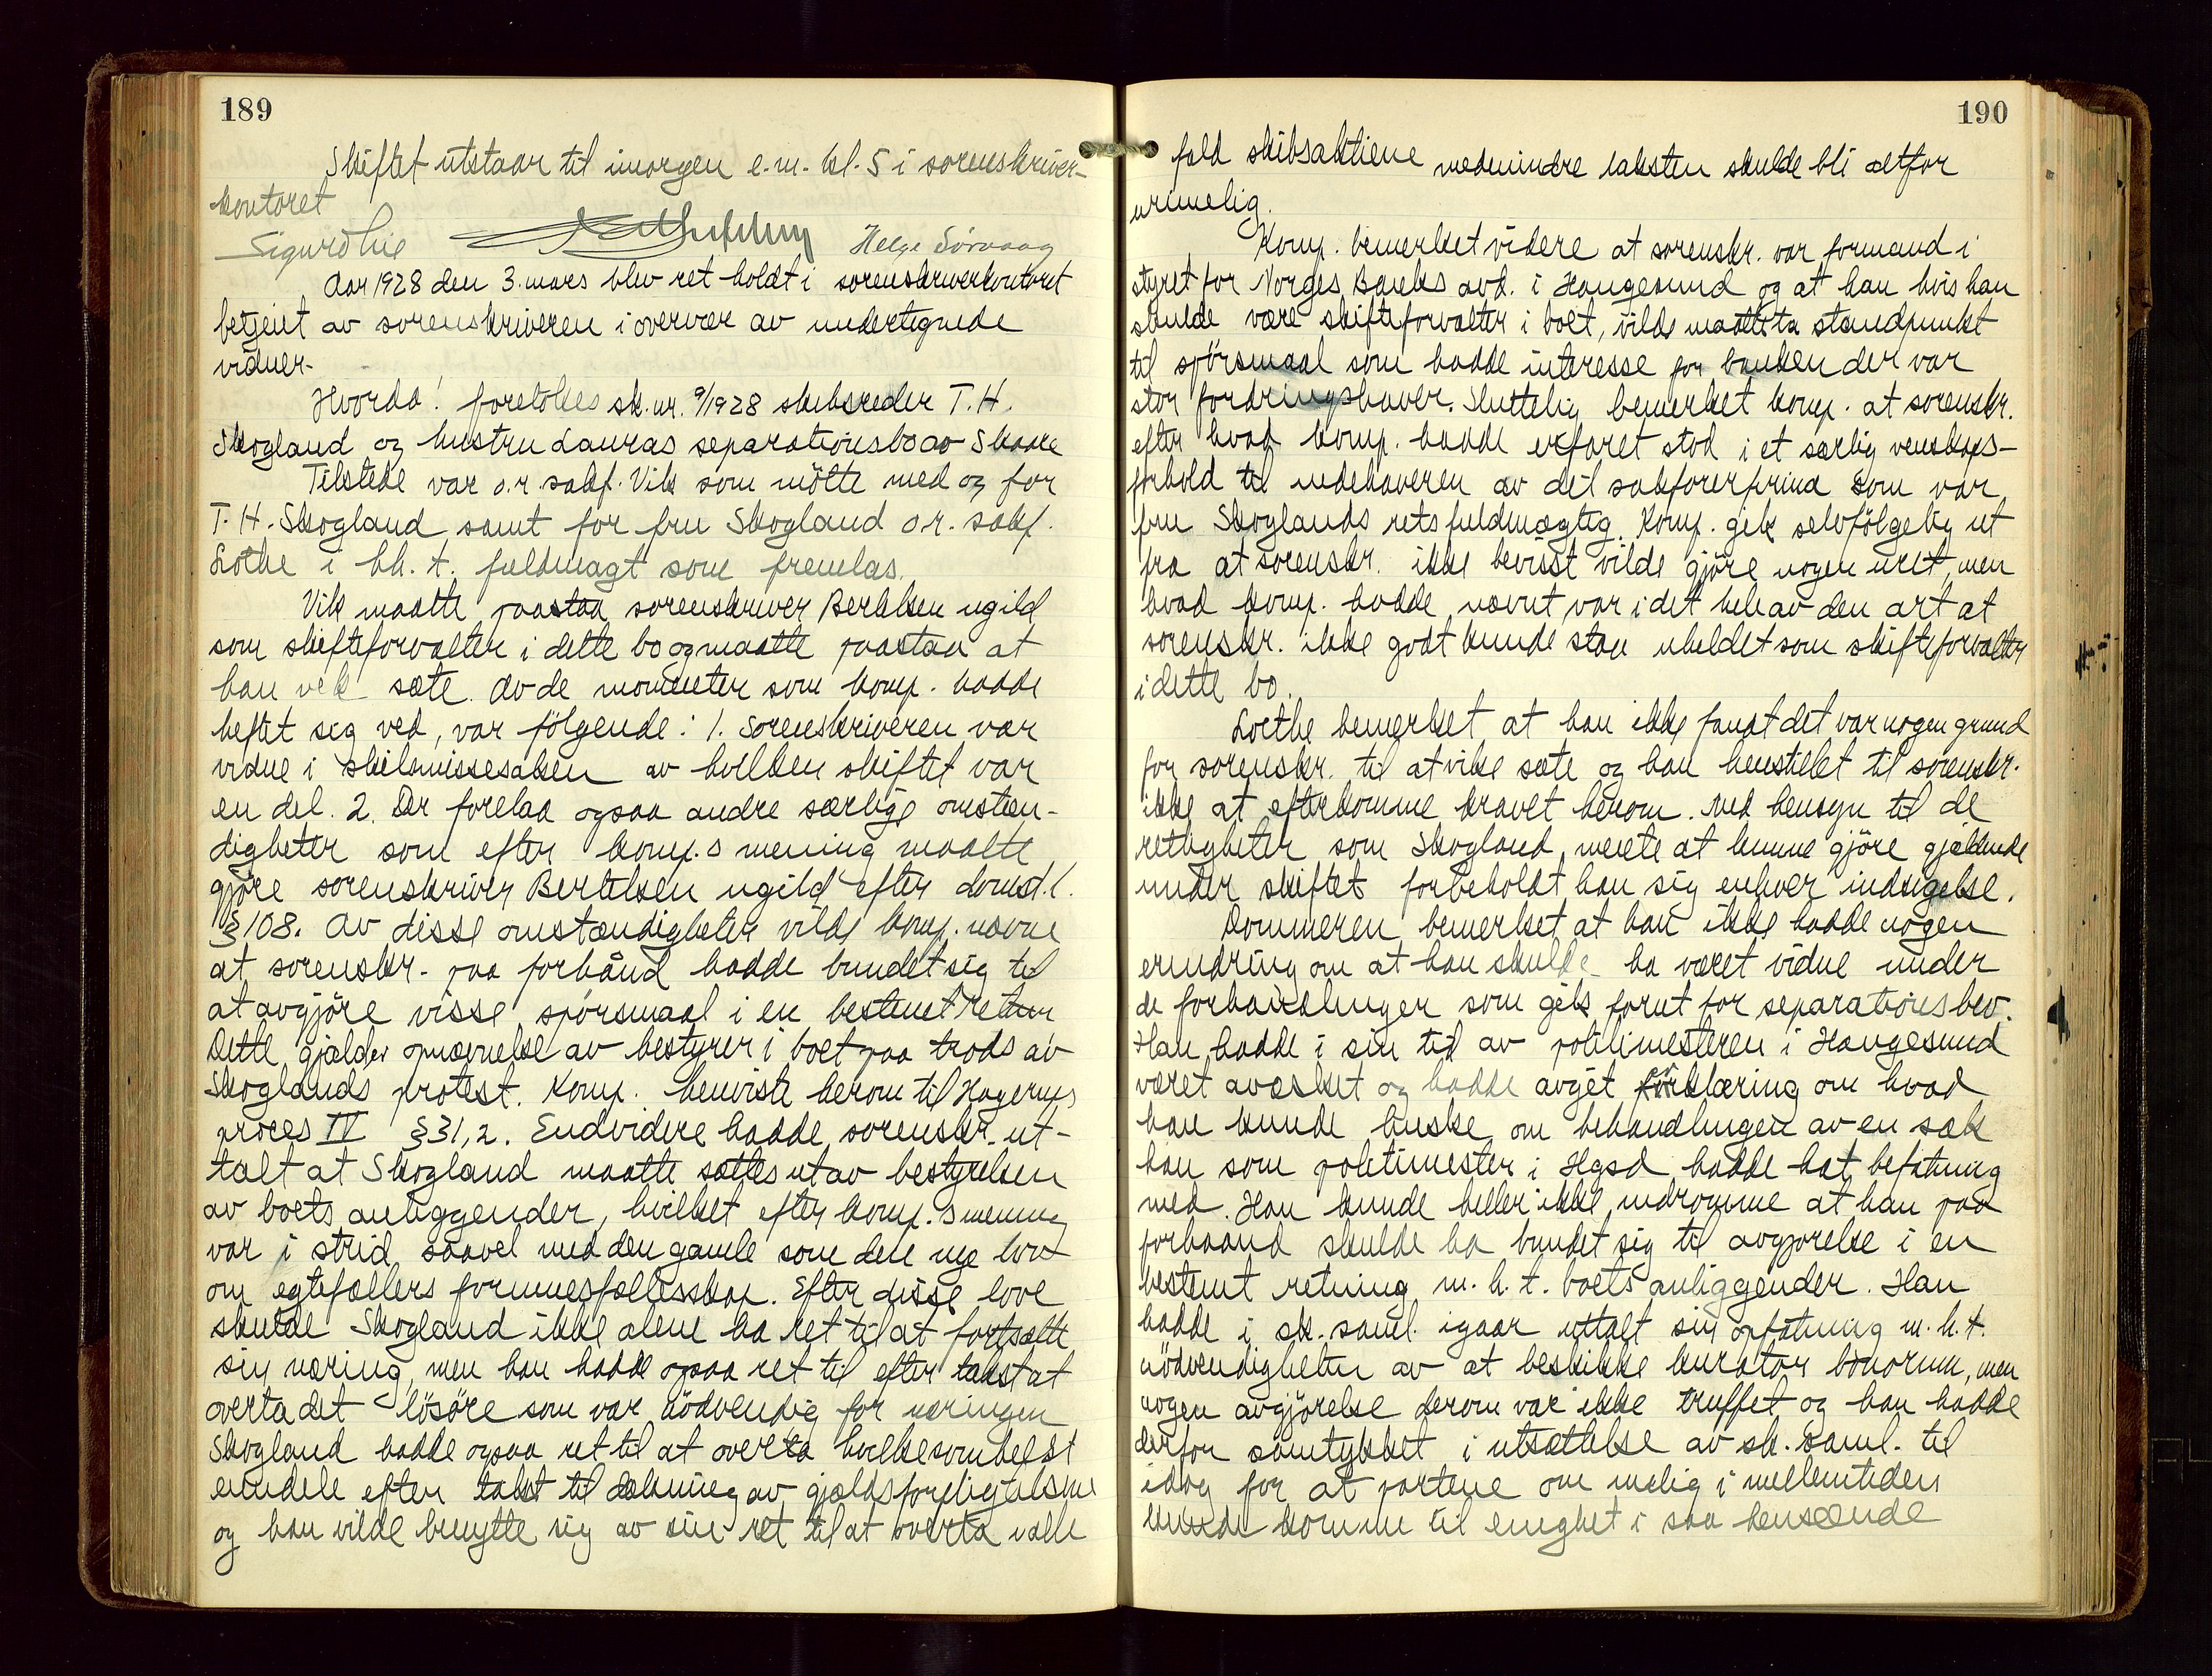 189
Skiftet utstaar til imorgen e.m. kl. 5 i sorenskriver-
kontoret
Sigurd Lie Helge Sörvaag
Aar 1928 den 3. mars blev ret holdt i sorenskriverkontoret
betjent av sorenskriveren i overvær av undertegnede
vidner.
Hvorda! foretokes sk.nr. 9/1928 skibsreder T.H.
Skogland og hustru Lauras separationsbo av Skaare
Tilstede var o.r. sakf. Vik som mötte med og for
T.H. Skogland samt for fru Skogland o.r. sakf.
Lothe i hh. t. fuldmagt som fremlas.
Vik maatte paastaa sorenskriver Bertelsen ugild
som skifteforvalter i dette bo og maatte paastaa at
han vek sæte. Av de momenter som komp. hadde
heftet seg ved, var fölgende: 1. Sorenskriveren var
vidne i skilsmissesaken av hvilken skiftet var
en del. 2. Der forelaa ogsaa andre særlige omstæn-
digheter som efter komp.s mening maatte
gjöre sorenskriver Bertelsen ugild efter domst.l.
§ 108. Av disse omstændigheter vilde komp. nævne
at sorenskr. paa forhånd hadde bundet sig til
at avgjöre visse spörsmaal i en bestemt retning
Dette gjælder opnævnelse av bestyrer i boet paa trods av
Skoglands protest. Komp. henviste herom til Hagerups
proces IV § 31, 2. Endvidere hadde sorenskr. ut-
talt at Skogland maatte sættes ut av bestyrelsen
av boets anliggender, hvilket efter komp.s mening
var i strid saavel med den gamle som den nye lov
om egtefællers formuesfællesskap. Efter disse love
skulde Skogland ikke alene ha ret til at fortsætte
sin næring, men han hadde ogsaa ret til efter takst at
overta det lösöre som var nödvendig for næringen
Skogland hadde ogsaa ret til at overta hvilkesomhelst
eiendele efter takst til dækning av gjældsforpligtelsene
og han vilde benytte sig av sin ret til at overta i alle
190
fald skibsaktiene medmindre taksten skulde bli altfor
urimelig.
Komp. bemerket videre at sorenskr. var formand i
styret for Norges Banks avd. i Haugesund og at han hvis han
skulde være skifteforvalter i boet, vilde maatte ta standpunkt
til spörsmaal som hadde interesse for banken der var
stor fordringshaver. Sluttelig bemerket komp. at sorenskr.
efter hvad komp. hadde erfaret stod i et særlig venskaps-
forhold til indehaveren av det sakförerfirma som var
fru Skoglands retsfuldmægtig. Komp. gik selvfölgelig ut
fra at sorenskr. ikke bevisst vilde gjöre nogen uret, men
hvad komp. hadde nævnt var i det hele av den art at
sorenskr. ikke godt kunde staa uhildet som skifteforvalter
i dette bo.
Lothe bemerket at han ikke fandt det var nogen grund
for sorenskr. til at vike sæte og han henstillet til sorenskr.
ikke at efterkomme kravet herom. Med hensyn til de
rettigheter som Skogland mente at kunne gjöre gjældende
under skiftet forbeholdt han sig enhver indsigelse.
Dommeren bemerket at han ikke hadde nogen
erindring om at han skulde ha været vidne under
de forhandlinger som gik forut for separationsbev.
Han hadde i sin tid av politimesteren i Haugesund
været avæsket og hadde avgit erklæring om hvad
han kunde huske om behandlingen av en sak
han som politimester i Hgsd hadde hat befatning
med. Han kunde heller ikke indrömme at han paa
forhaand skulde ha bundet sig til avgjorelse i en
bestemt retning m.h.t. boets anliggender. Han
hadde i sk.saml. igaar uttalt sin opfatning m.h.t.
nödvendigheten av at beskikke kurator bonorum, men
nogen avgjörelse derom var ikke truffet og han hadde
derfor samtykket i utsættelse av sk.saml. til
idag for at partene om mulig i mellemtiden
kunde komme til enighet i saa henseende